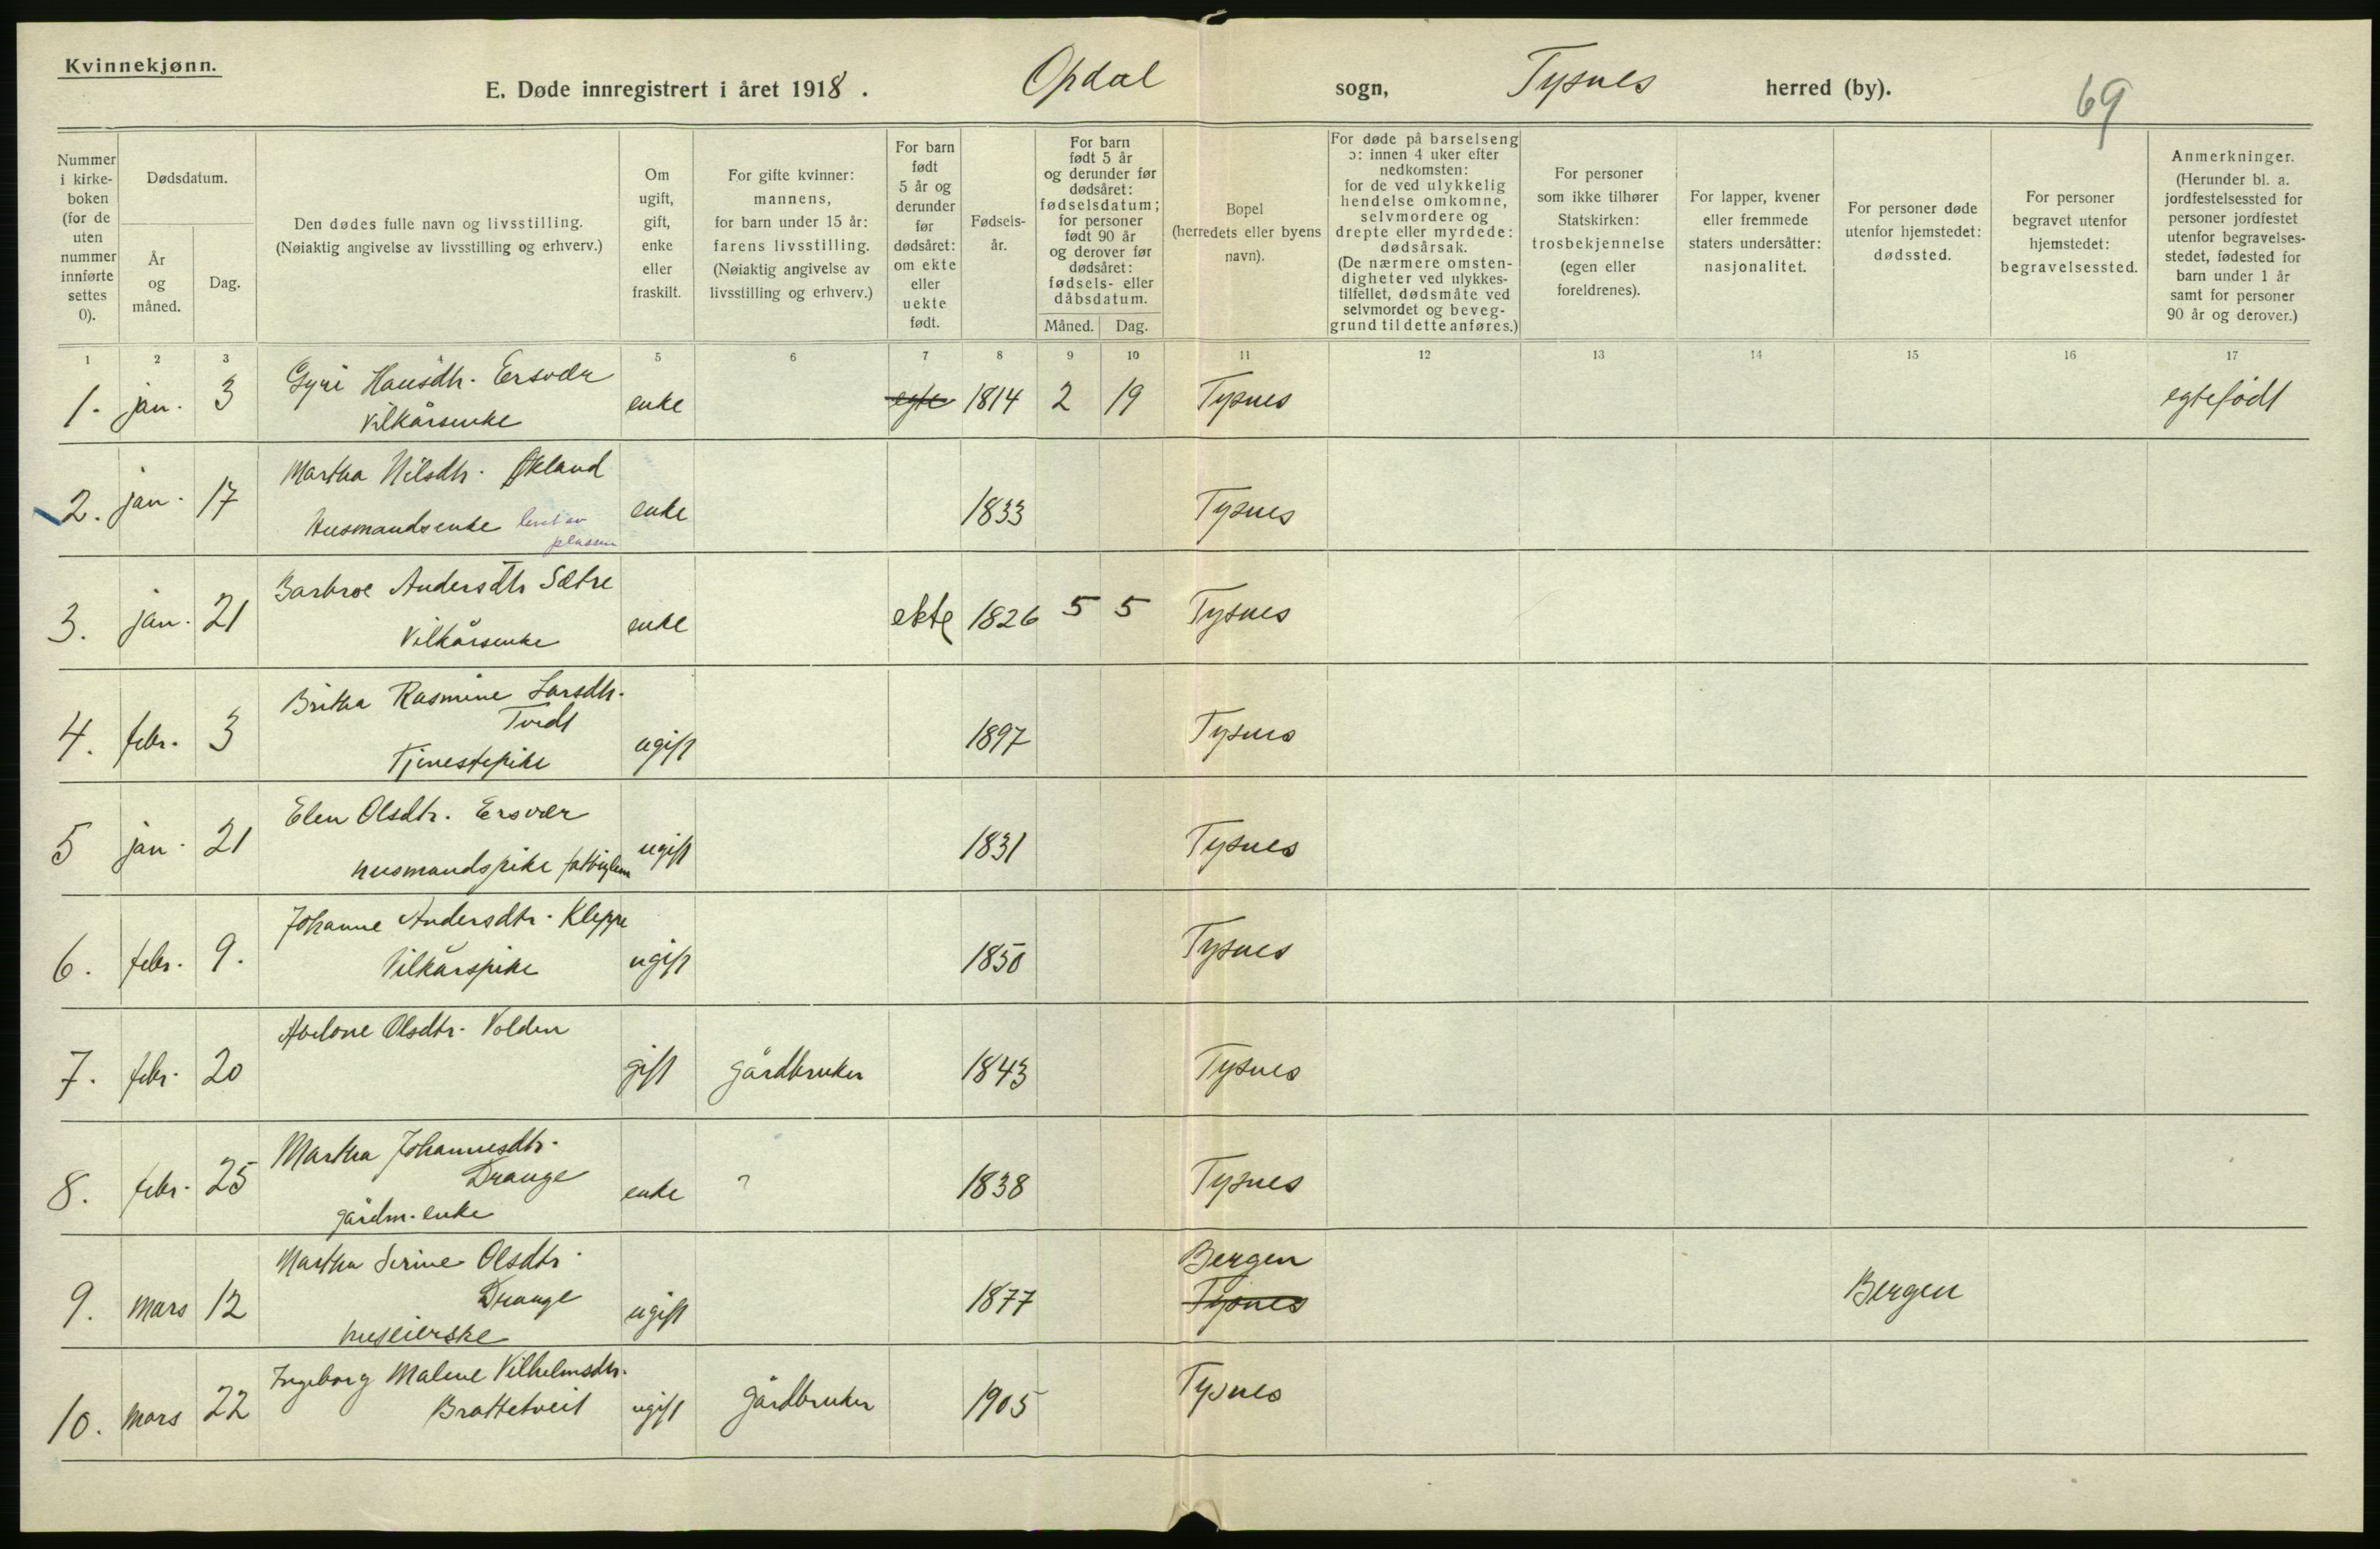 Kvinnekjønn.
E. Døde innregistrert i året 1918. Opdal sogn, Tysnes herred (by). 69
Nummer i kirkeboken (for de uten nummer innførte settes 0).
Dødsdatum.
År og måned.
Dag.
Den dødes fulle navn og livsstilling.
(Nøiaktig angivelse av livsstilling og erhverv.)
Om ugift, gift, enke eller fraskilt.
For gifte kvinner: mannens, for barn under 15 år: farens livsstilling. (Nøiaktig angivelse av livsstilling og erhverv.)
For barn født 5 år og derunder før dødsåret: om ekte eller uekte født.
Fødsels-år.
For barn født 5 år og derunder før dødsåret: fødselsdatum; for personer født 90 år og derover før dødsåret: fødsels- eller dåbsdatum.
Måned. Dag.
Bopel (herredets eller byens navn).
For døde på barselseng ɔ: innen 4 uker efter nedkomsten: for de ved ulykkelig hendelse omkomne, selvmordere og drepte eller myrdede: dødsårsak. (De nærmere omstendigheter ved ulykkestilfellet, dødsmåte ved selvmordet og beveggrund til dette anføres.)
For personer som ikke tilhører Statskirken: trosbekjennelse (egen eller foreldrenes).
For lapper, kvener eller fremmede staters undersåtter: nasjonalitet.
For personer døde utenfor hjemstedet: dødssted.
For personer begravet utenfor hjemstedet: begravelsessted.
Anmerkninger. (Herunder bl. a. jordfestelsessted for personer jordfestet utenfor begravelsesstedet, fødested for barn under 1 år samt for personer 90 år og derover.)
1 2 3 4 5 6 7 8 9 10 11 12 13 14 15 16 17
1. jan. 3 Gyri Hansdtr. Ersvær
vilkårsenke enke egte 1814 2 19 Tysnes egtefødt
2. jan. 17 Martha Nilsdtr. Økland
Husmandsenke levet av plassen enke 1833 Tysnes
3. jan. 21 Barbroe Andersdtr Sætre
Vilkårsenke enke ekte 1826 5 5 Tysnes
4. febr. 3 Britha Rasmine Larsdtr.
Tvedt
Tjenestepike ugift 1897 Tysnes
5 jan. 21 Elen Olsdtr. Ersvær
husmandspike fattiglem ugift 1831 Tysnes
6. febr. 9. Johanne Andersdtr. Kleppe
Vilkårspike ugift 1850 Tysnes
7. febr. 20 Avelone Olsdtr. Volden
gift gårdbruker 1843 Tysnes
8. febr. 25 Martha Johannesdtr.
Drange
gårdm. enke enke ? 1838 Tysnes
9. mars 12 Martha Serine Olsdtr.
Drange
huseierske ugift 1877 Bergen
Tysnes Bergen
10. mars 22 Ingeborg Malene Vilhelmsdtr.
Brattetveit ugift gårdbruker 1905 Tysnes